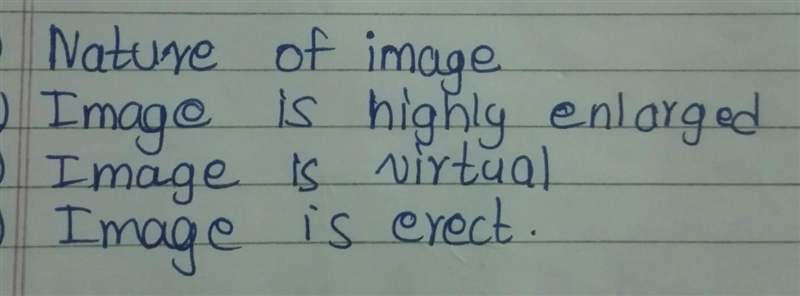 Nature of image
) Image is highly enlarged
) Image is virtual
) Image is erect.